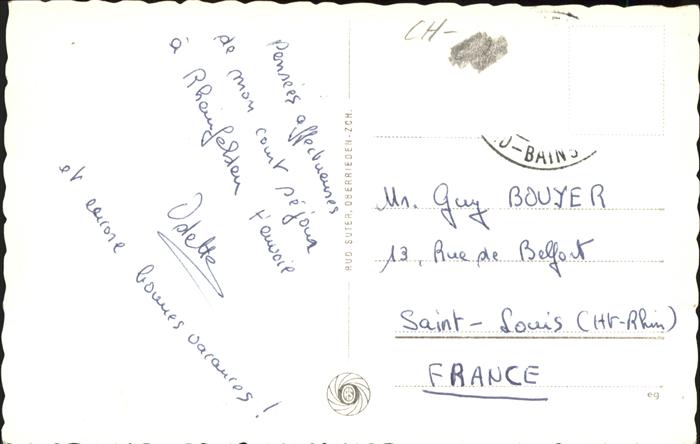 Pensées affectueuses
de mon court séjour
à Rheinfelden t'envoie
Odette
et encore bonnes vacances !
RUD. SUTER, OBERRIEDEN-ZCH.
CH-
U-BAINS
Mr. Guy BOUYER
13, Rue de Belfort
Saint-Louis (Ht-Rhin)
FRANCE
eg